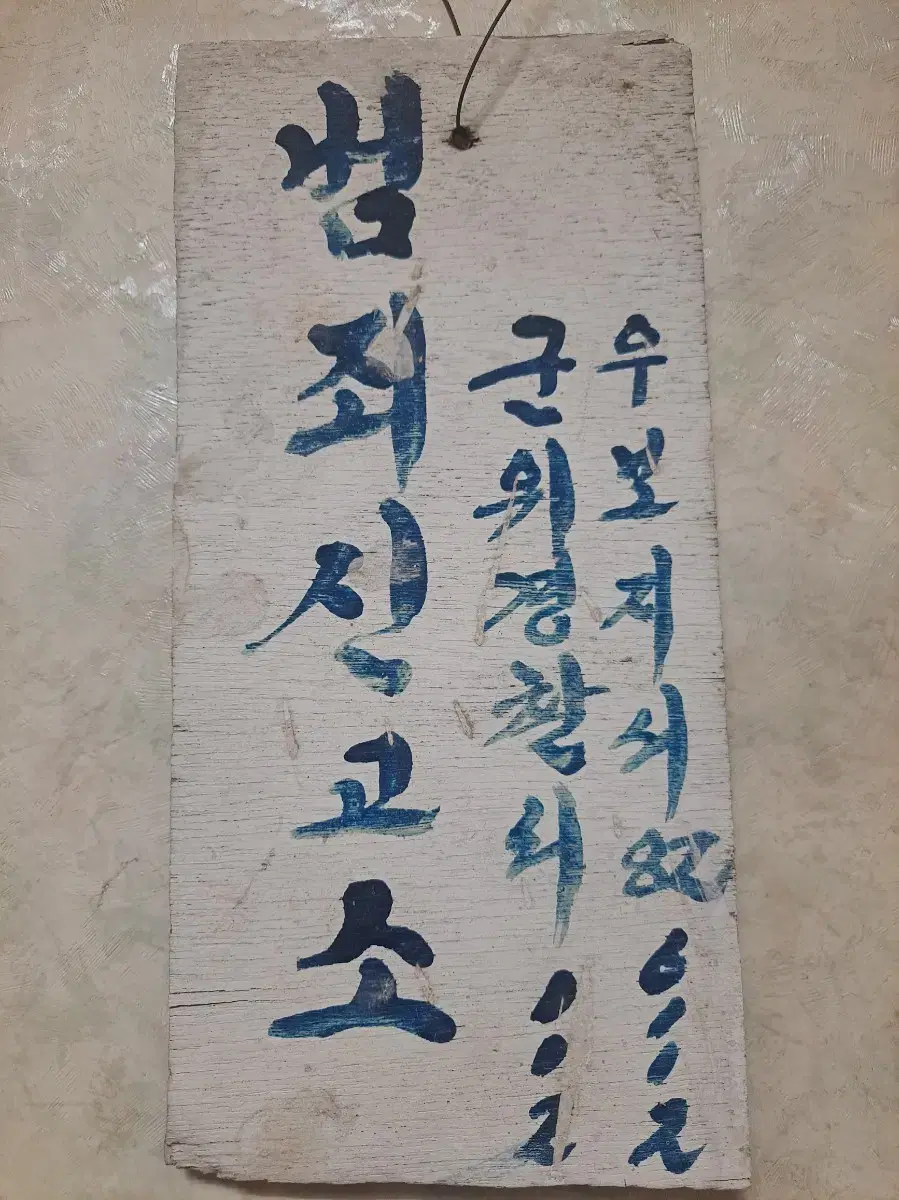 범죄신고소
군위경찰서 112
우보지서 82 6112